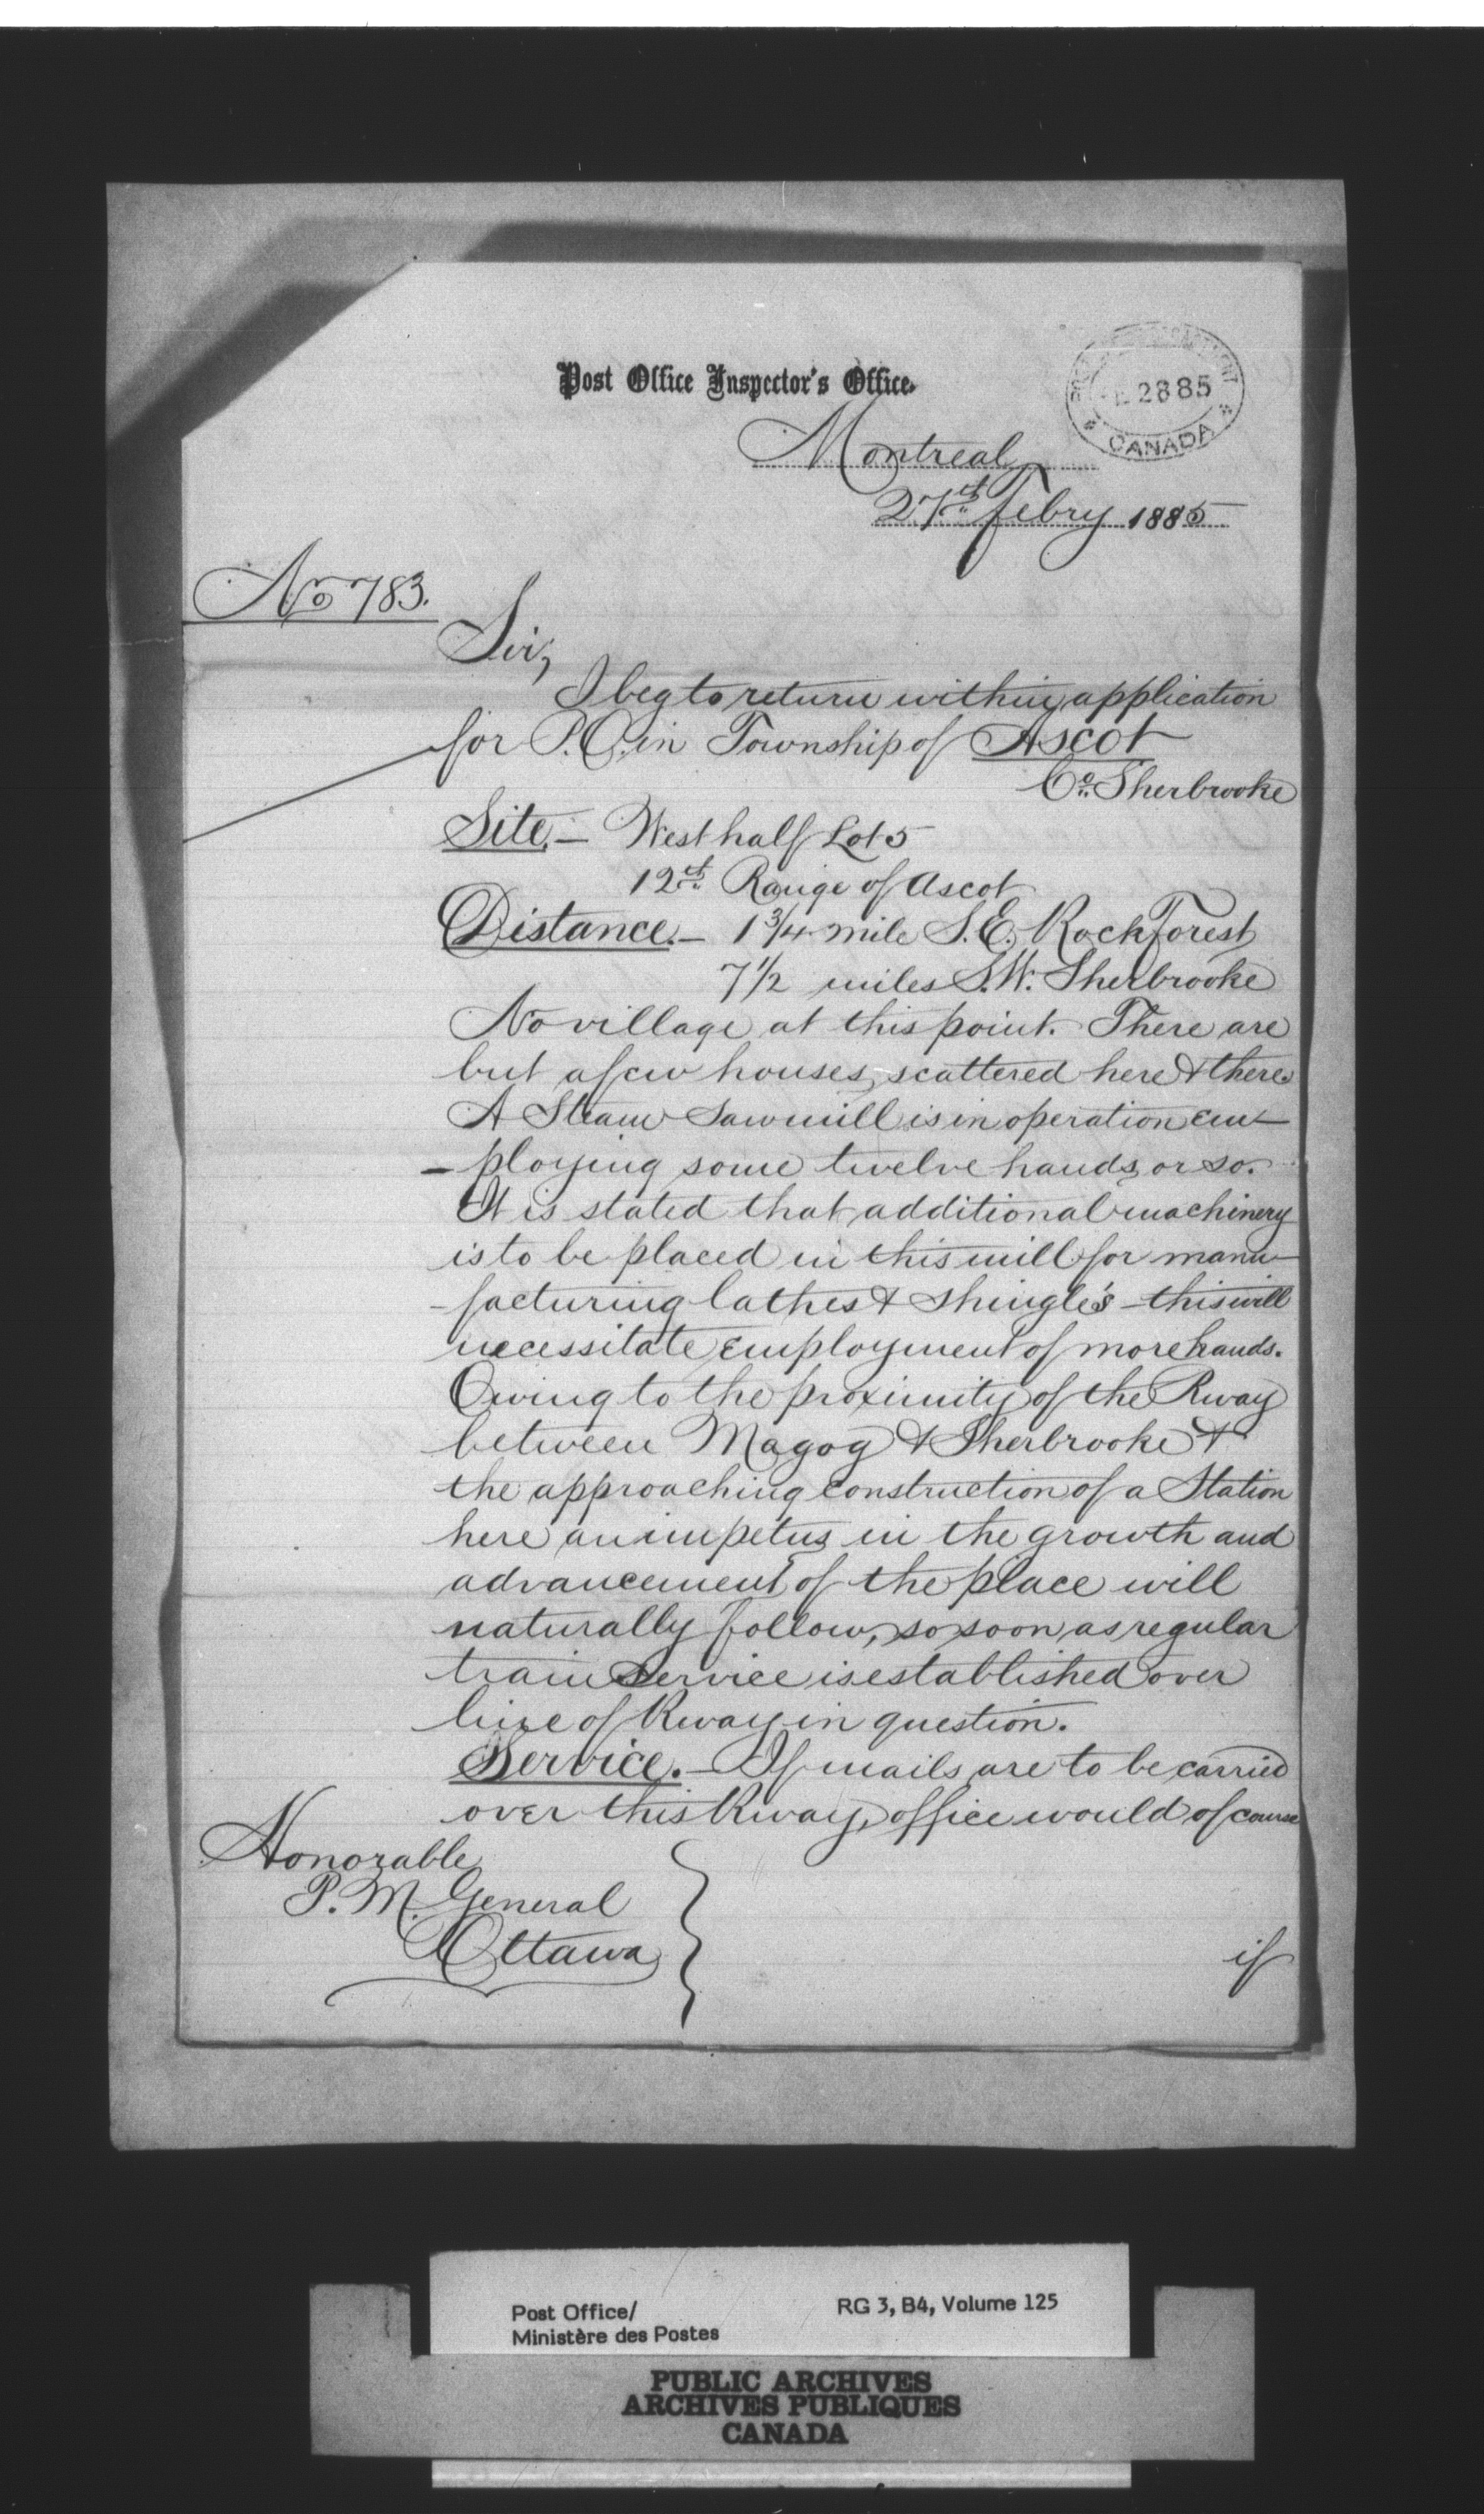 Post Office Inspector's Office.
2885
CANADA
Montreal
27th Febry 1885
No 783.
Sir,
I beg to return within application
for P.O. in Township of Ascot
Co. Sherbrooke
Site.— West half Lot 5
12th Range of Ascot
Distance.— 1 3/4 mile S.E. Rock Forest
7 1/2 miles S.W. Sherbrooke
No village at this point. There are
but a few houses, scattered here & there
A Steam Sawmill is in operation em-
-ploying some twelve hands or so.
It is stated that additional machinery
is to be placed in this mill for manu-
-facturing lathes & shingle's - this will
necessitate employment of more hands.
Owing to the proximity of the Rway
between Magog & Sherbrooke &
the approaching construction of a Station
here an impetus in the growth and
advancement of the place will
naturally follow, so soon as regular
train Service is established over
line of Rway in question.
Service.— If mails are to be carried
over this Rway, office would of course
Honorable
P. M. General
Ottawa
if
Post Office/
Ministère des Postes
RG 3, B4, Volume 125
PUBLIC ARCHIVES
ARCHIVES PUBLIQUES
CANADA